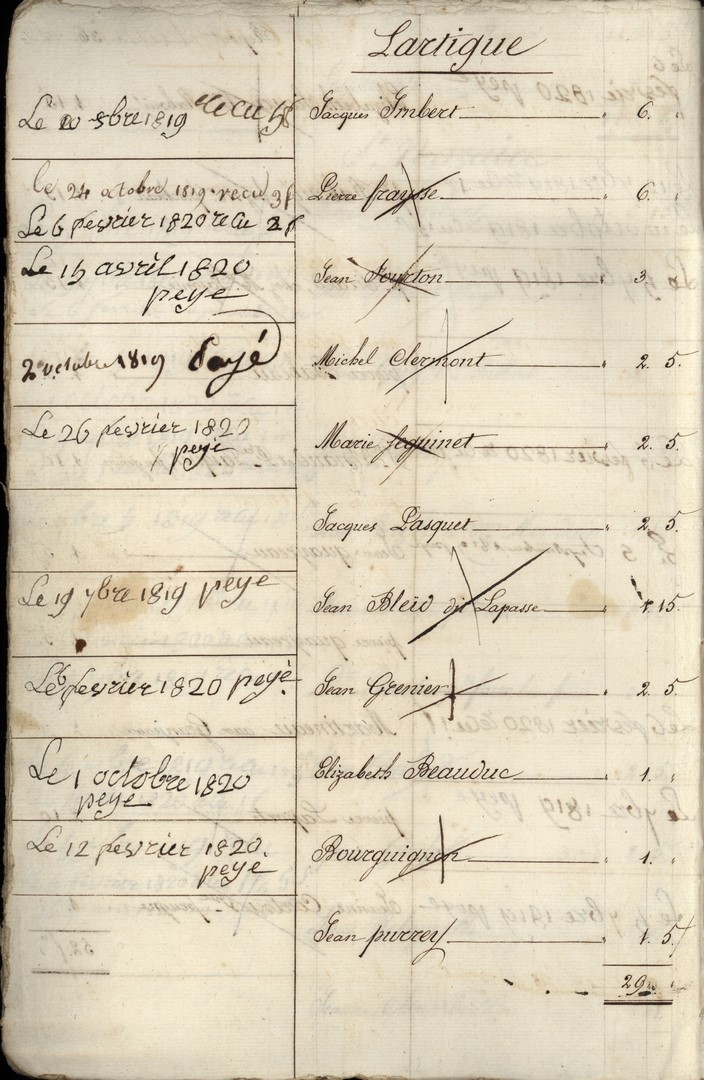 Lartigue
Le 10 8bre 1819 recu Jacques Imbert 6. "
le 24 octobre 1819 recu 3f
Le 6 fesvrier 1820 recu 2f Pierre fraysse 6. "
Le 15 avril 1820
peyé Jean Fourton 3. "
2 octobre 1819 Payé Michel Clermont 2. 5.
Le 26 fesvrier 1820
peyé Marie Seguinet 2. 5.
Jacques Pasquet 2. 5.
Le 19 7bre 1819 peyé Jean Bleid dit Lapasse 1. 15.
Le 6 fesvrier 1820 peyé Jean Grenier 2. 5.
Le 1 octobre 1820
peyé Elizabeth Beauduc 1. "
Le 12 fesvrier 1820.
peyé Bourguignon 1. "
Jean purrey 1. 5
29 "